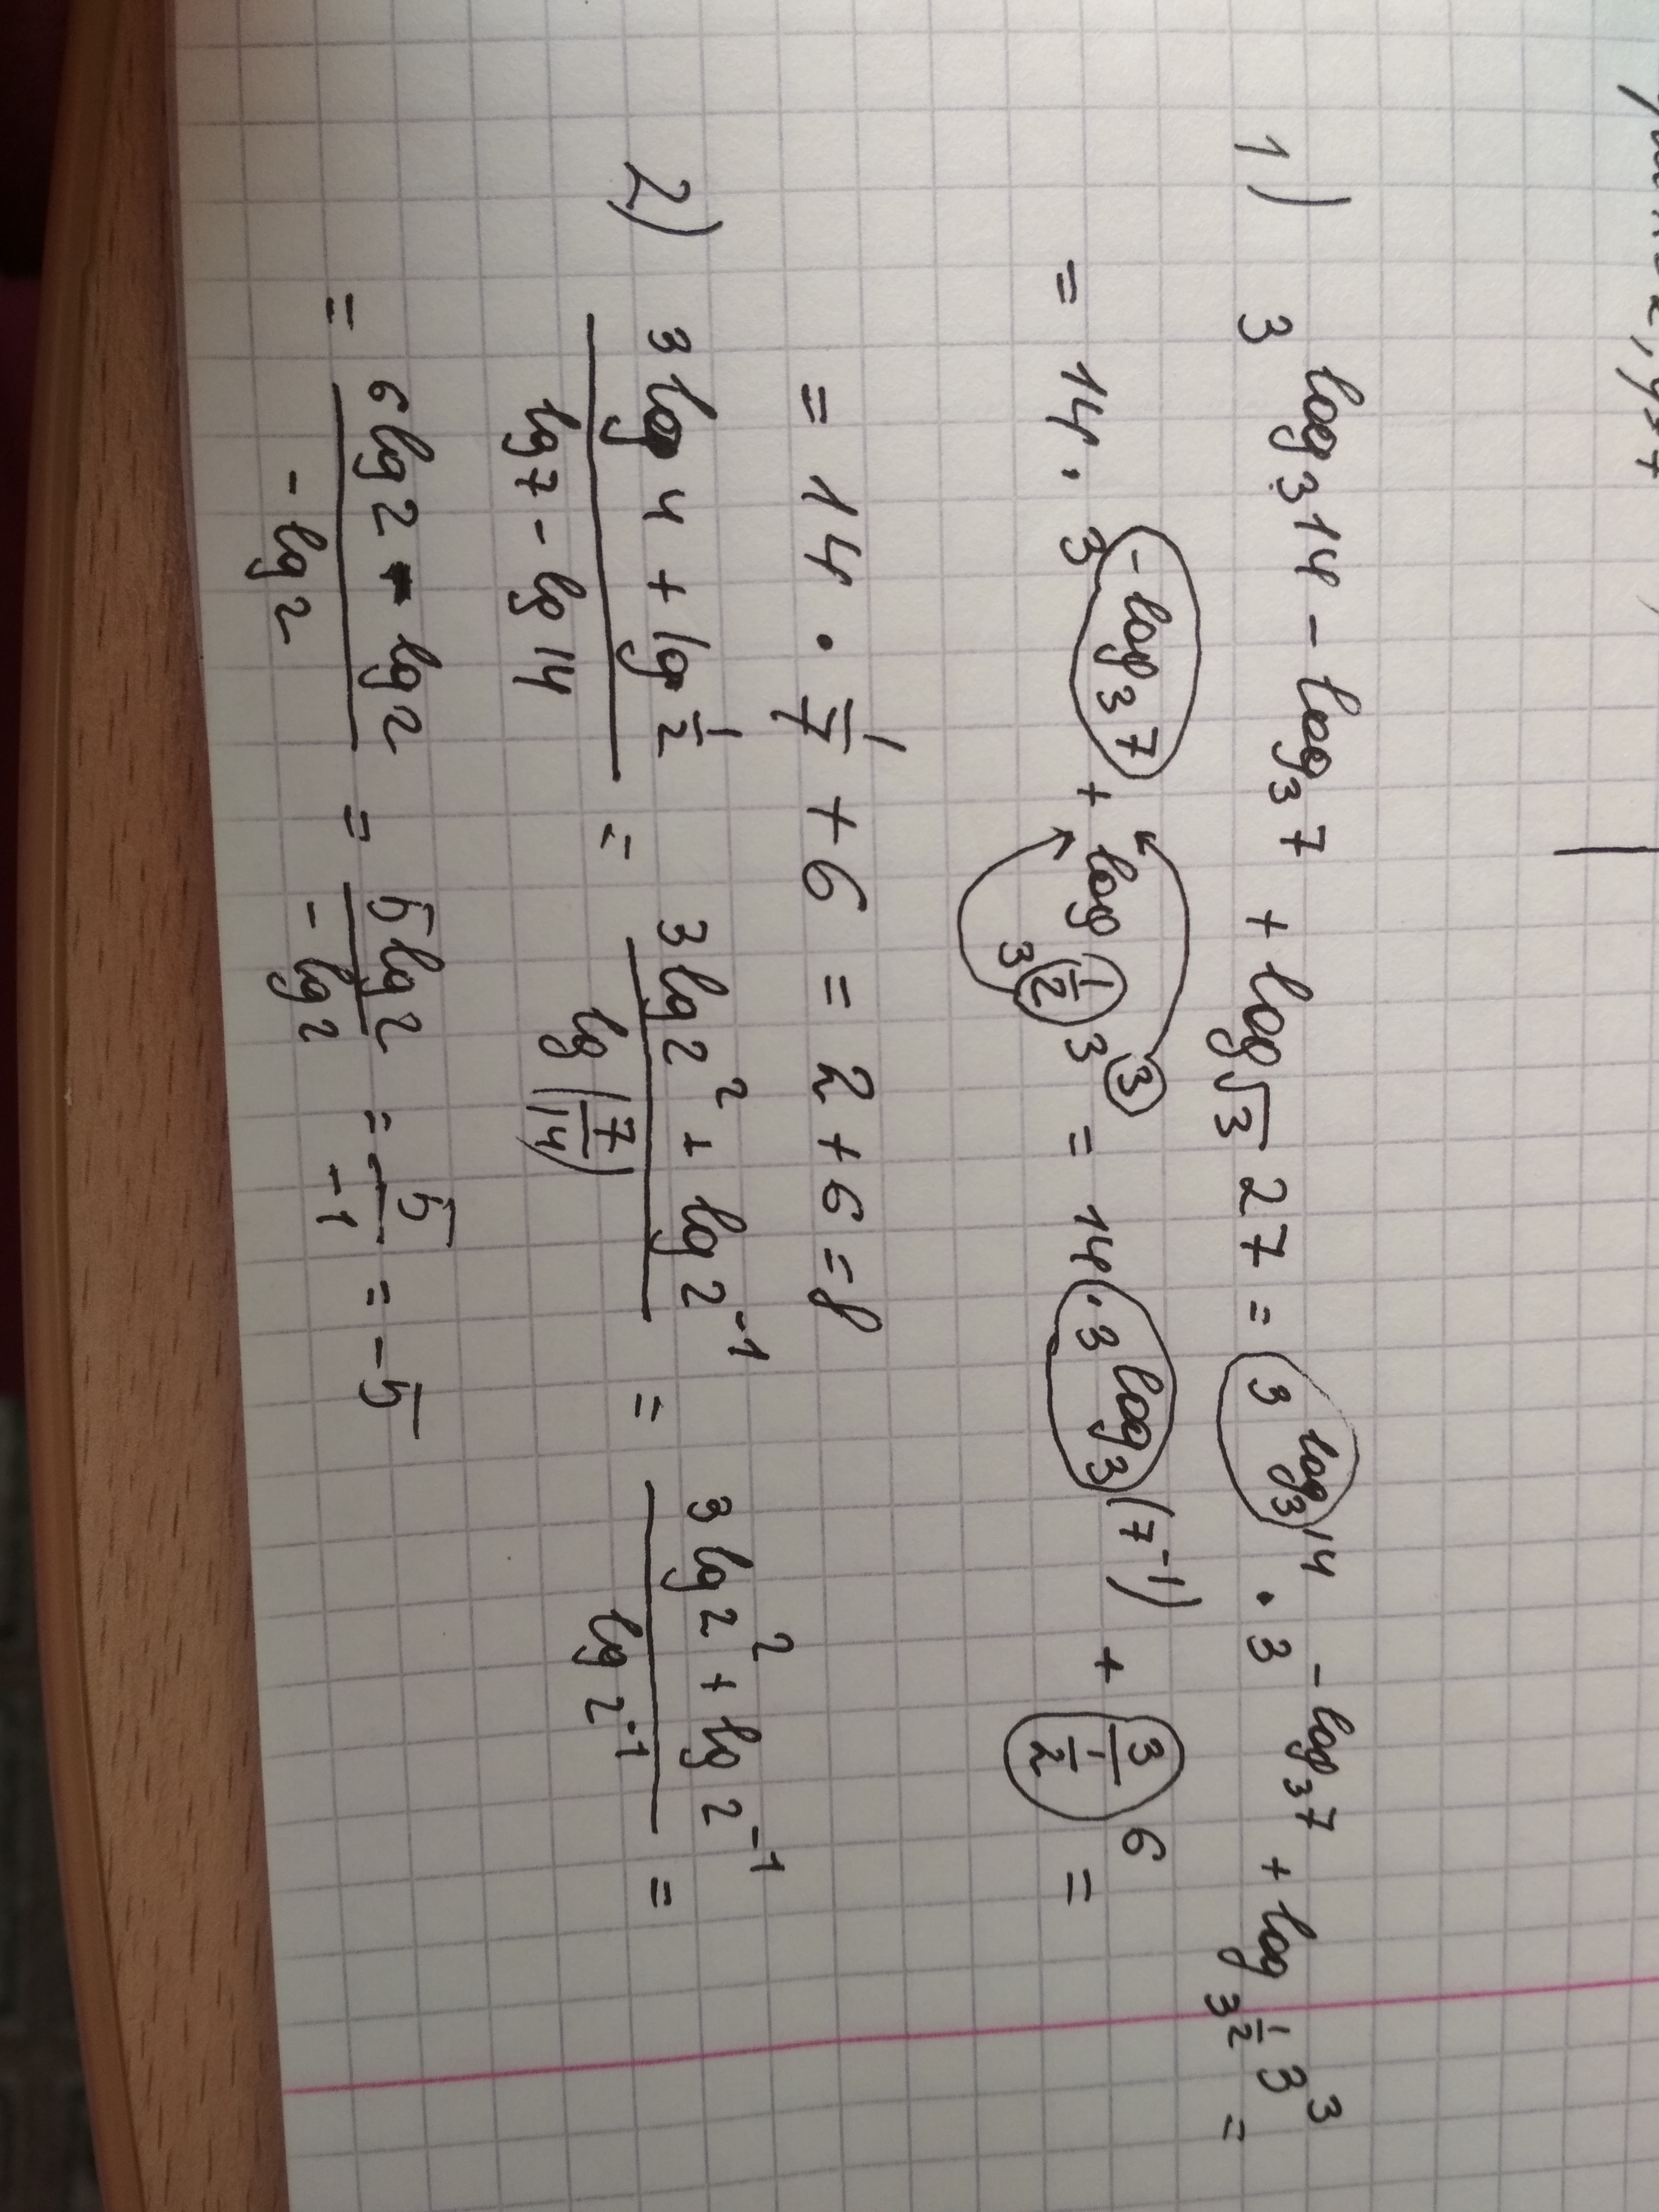 1) 3^{log_3 14 - log_3 7} + log_{√3} 27 = 3^{log_3 14} · 3^{-log_3 7} + log_{3^{1/2}} 3^3 =
= 14 · 3^{-log_3 7} + log_{3^{1/2}} 3^3 = 14 · 3^{log_3 (7^{-1})} + 3/(1/2) 6 =
= 14 · 1/7 + 6 = 2 + 6 = 8
2) (3 lg 4 + lg 1/2)/(lg 7 - lg 14) = (3 lg 2^2 + lg 2^{-1})/(lg (7/14)) = (3 lg 2^2 + lg 2^{-1})/(lg 2^{-1}) =
= (6 lg 2 - lg 2)/(- lg 2) = (5 lg 2)/(- lg 2) = 5/-1 = -5